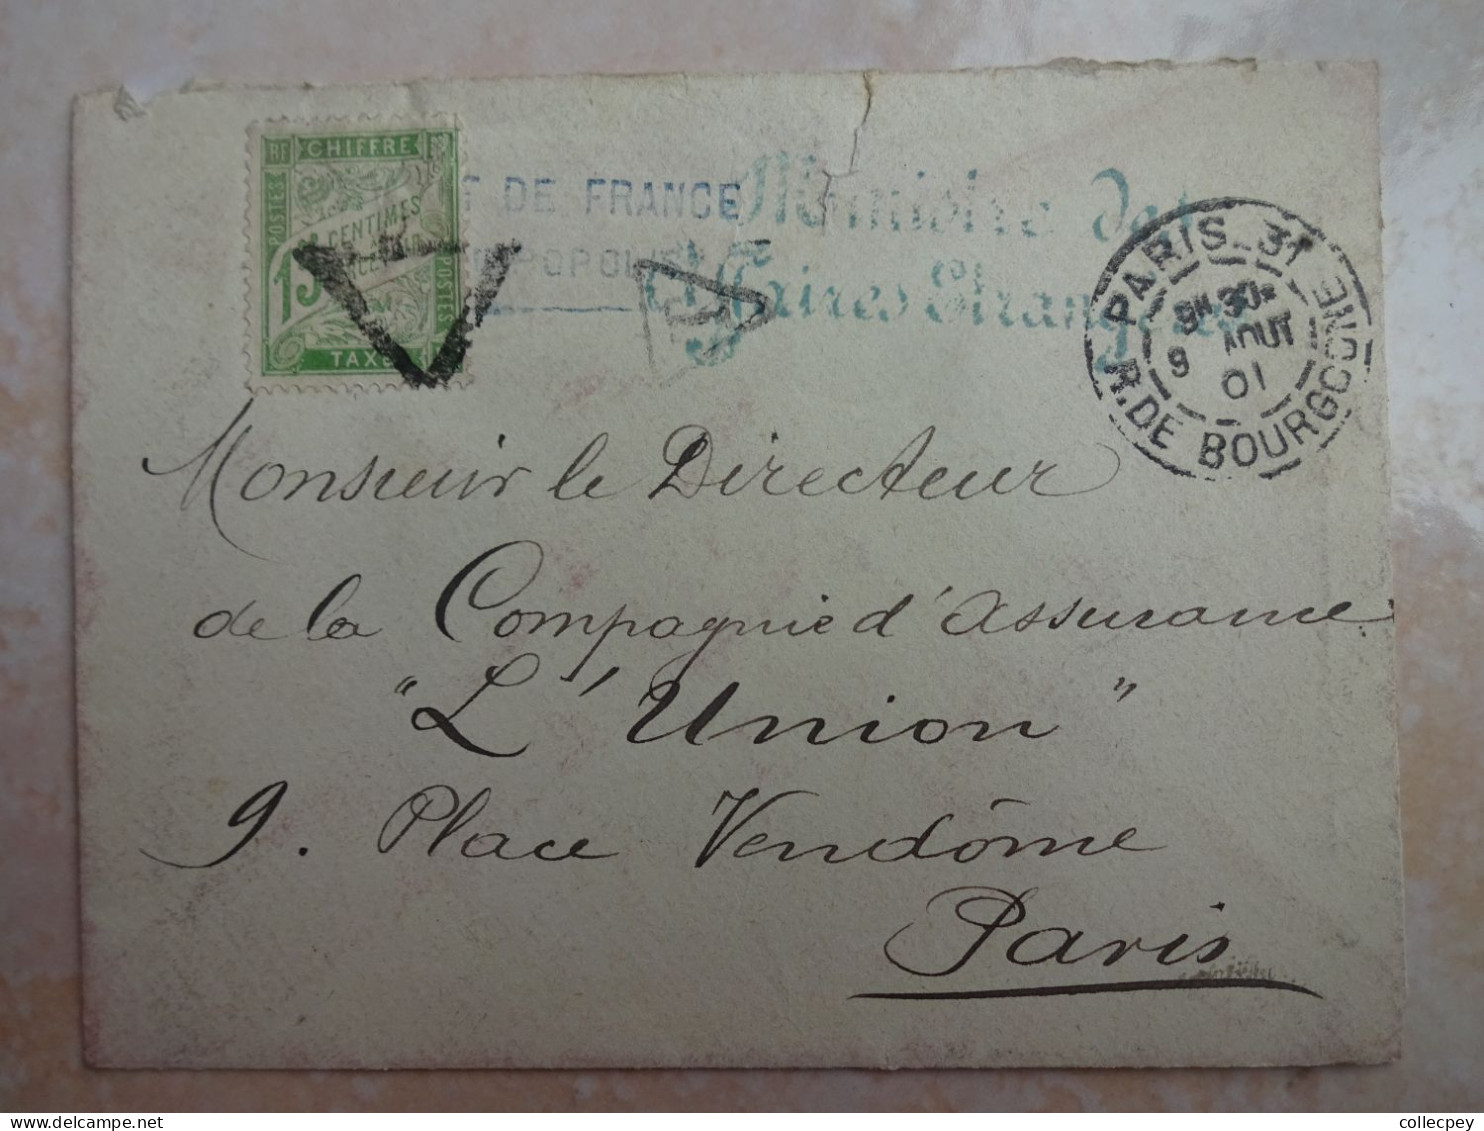 RF CHIFFRE
POSTES
CENTIMES
POSTES
15
TAXE
DE FRANCE
Ministère des
Affaires Etrangères
T
PARIS_31
9H 30E
9 AOUT
01
R. DE BOURGOGNE
Monsieur le Directeur
de la Compagnie d'assurance
"L'Union"
9. Place Vendôme
Paris
collecpey